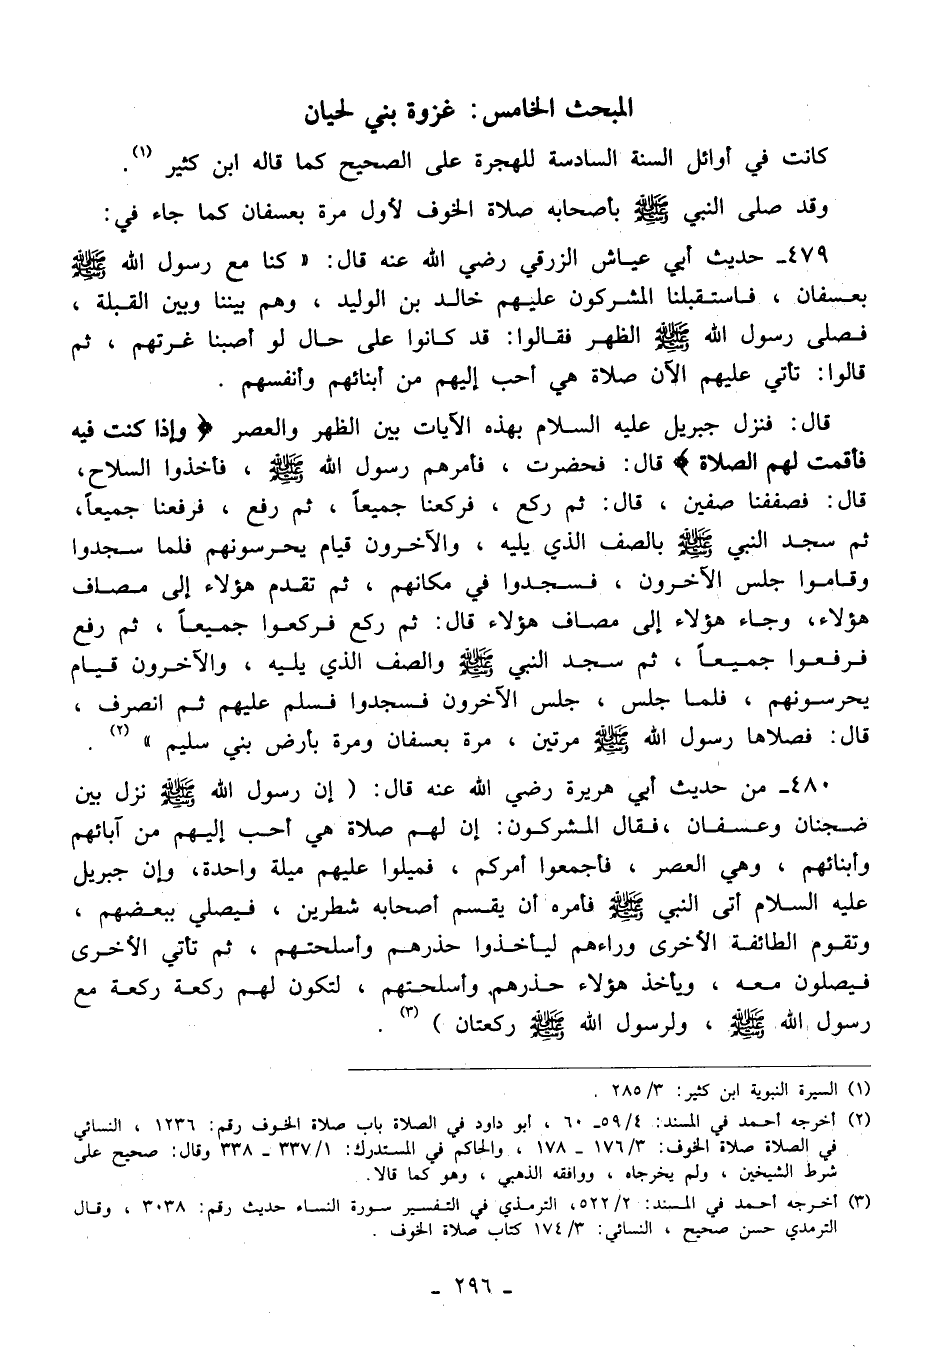 المبحث الخامس: غزوة بني لحيان
كانت في أوائل السنة السادسة للهجرة على الصحيح كما قاله ابن كثير (١).
وقد صلى النبي ﷺ بأصحابه صلاة الخوف لأول مرة بعسفان كما جاء في:
٤٧٩ـ حديث أبي عياش الزرقي رضي الله عنه قال: « كنا مع رسول الله ﷺ
بعسفان ، فاستقبلنا المشركون عليهم خالد بن الوليد ، وهم بيننا وبين القبلة ،
فصلى رسول الله ﷺ الظهر فقالوا: قد كانوا على حال لو أصبنا غرتهم ، ثم
قالوا: تأتي عليهم الآن صلاة هي أحب إليهم من أبنائهم وأنفسهم .
قال: فنزل جبريل عليه السلام بهذه الآيات بين الظهر والعصر ﴿ وإذا كنت فيه
فأقمت لهم الصلاة ﴾ قال: فحضرت ، فأمرهم رسول الله ﷺ ، فأخذوا السلاح،
قال: فصففنا صفين ، قال: ثم ركع ، فركعنا جميعاً ، ثم رفع ، فرفعنا جميعاً،
ثم سجد النبي ﷺ بالصف الذي يليه ، والآخرون قيام يحرسونهم فلما سجدوا
وقاموا جلس الآخرون ، فسجدوا في مكانهم ، ثم تقدم هؤلاء إلى مصاف
هؤلاء، وجاء هؤلاء إلى مصاف هؤلاء قال: ثم ركع فركعوا جميعاً ، ثم رفع
فرفعوا جميعاً ، ثم سجد النبي ﷺ والصف الذي يليه ، والآخرون قيام
يحرسونهم ، فلما جلس ، جلس الآخرون فسجدوا فسلم عليهم ثم انصرف ،
قال: فصلاها رسول الله ﷺ مرتين ، مرة بعسفان ومرة بأرض بني سليم » (٢) .
٤٨٠ـ من حديث أبي هريرة رضي الله عنه قال: ( إن رسول الله ﷺ نزل بين
ضجنان وعسفان ،فقال المشركون: إن لهم صلاة هي أحب إليهم من آبائهم
وأبنائهم ، وهي العصر ، فأجمعوا أمركم ، فميلوا عليهم ميلة واحدة، وإن جبريل
عليه السلام أتى النبي ﷺ فأمره أن يقسم أصحابه شطرين ، فيصلي ببعضهم ،
وتقوم الطائفة الأخرى وراءهم ليأخذوا حذرهم وأسلحتهم ، ثم تأتي الأخرى
فيصلون معه ، ويأخذ هؤلاء حذرهم وأسلحتهم ، لتكون لهم ركعة ركعة مع
رسول الله ﷺ ، ولرسول الله ﷺ ركعتان ) (٣) .
(١) السيرة النبوية ابن كثير: ٢٨٥/٣ .
(٢) أخرجه أحمد في المسند: ٥٩/٤ـ ٦٠ ، أبو داود في الصلاة باب صلاة الخوف رقم: ١٢٣٦ ، النسائي
في الصلاة صلاة الخوف: ١٧٦/٣ ـ ١٧٨ ، والحاكم في المستدرك: ٣٣٧/١ ـ ٣٣٨ وقال: صحيح على
شرط الشيخين ، ولم يخرجاه ، ووافقه الذهبي ، وهو كما قالا.
(٣) أخرجه أحمد في المسند: ٥٢٢/٢، الترمذي في التفسير سورة النساء حديث رقم: ٣٠٣٨ ، وقال
الترمدي حسن صحيح ، النسائي: ١٧٤/٣ كتاب صلاة الخوف .
ـ ٢٩٦ ـ